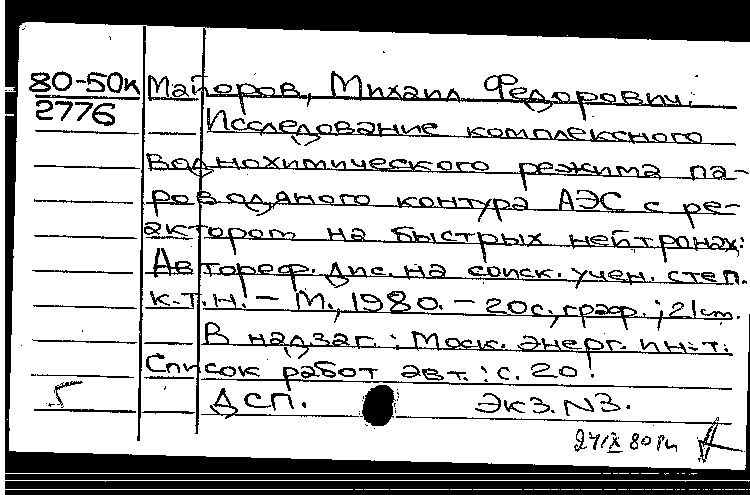 80-50к Майоров, Михаил Федорович.
2776
Исследование комплексного
воднохимического режима па-
роводяного контура АЭС с ре-
актором на быстрых нейтронах:
Автореф. дис. на соиск. учен. степ.
к.т.н. – М., 1980. – 20с., граф.; 21см.
В надзаг.: Моск. энерг. ин-т.
Список работ авт.: с. 20!
ДСП. Экз. N3.
27/IX 80